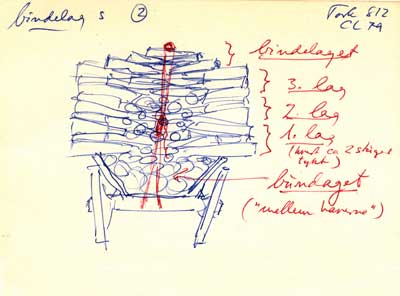 bindelag s ② Tork 812
CL 79
bindelaget
3. lag
2. lag
1. lag
(hvert ca 2 skiger
tykt)
bundlaget
("mellem haverne")